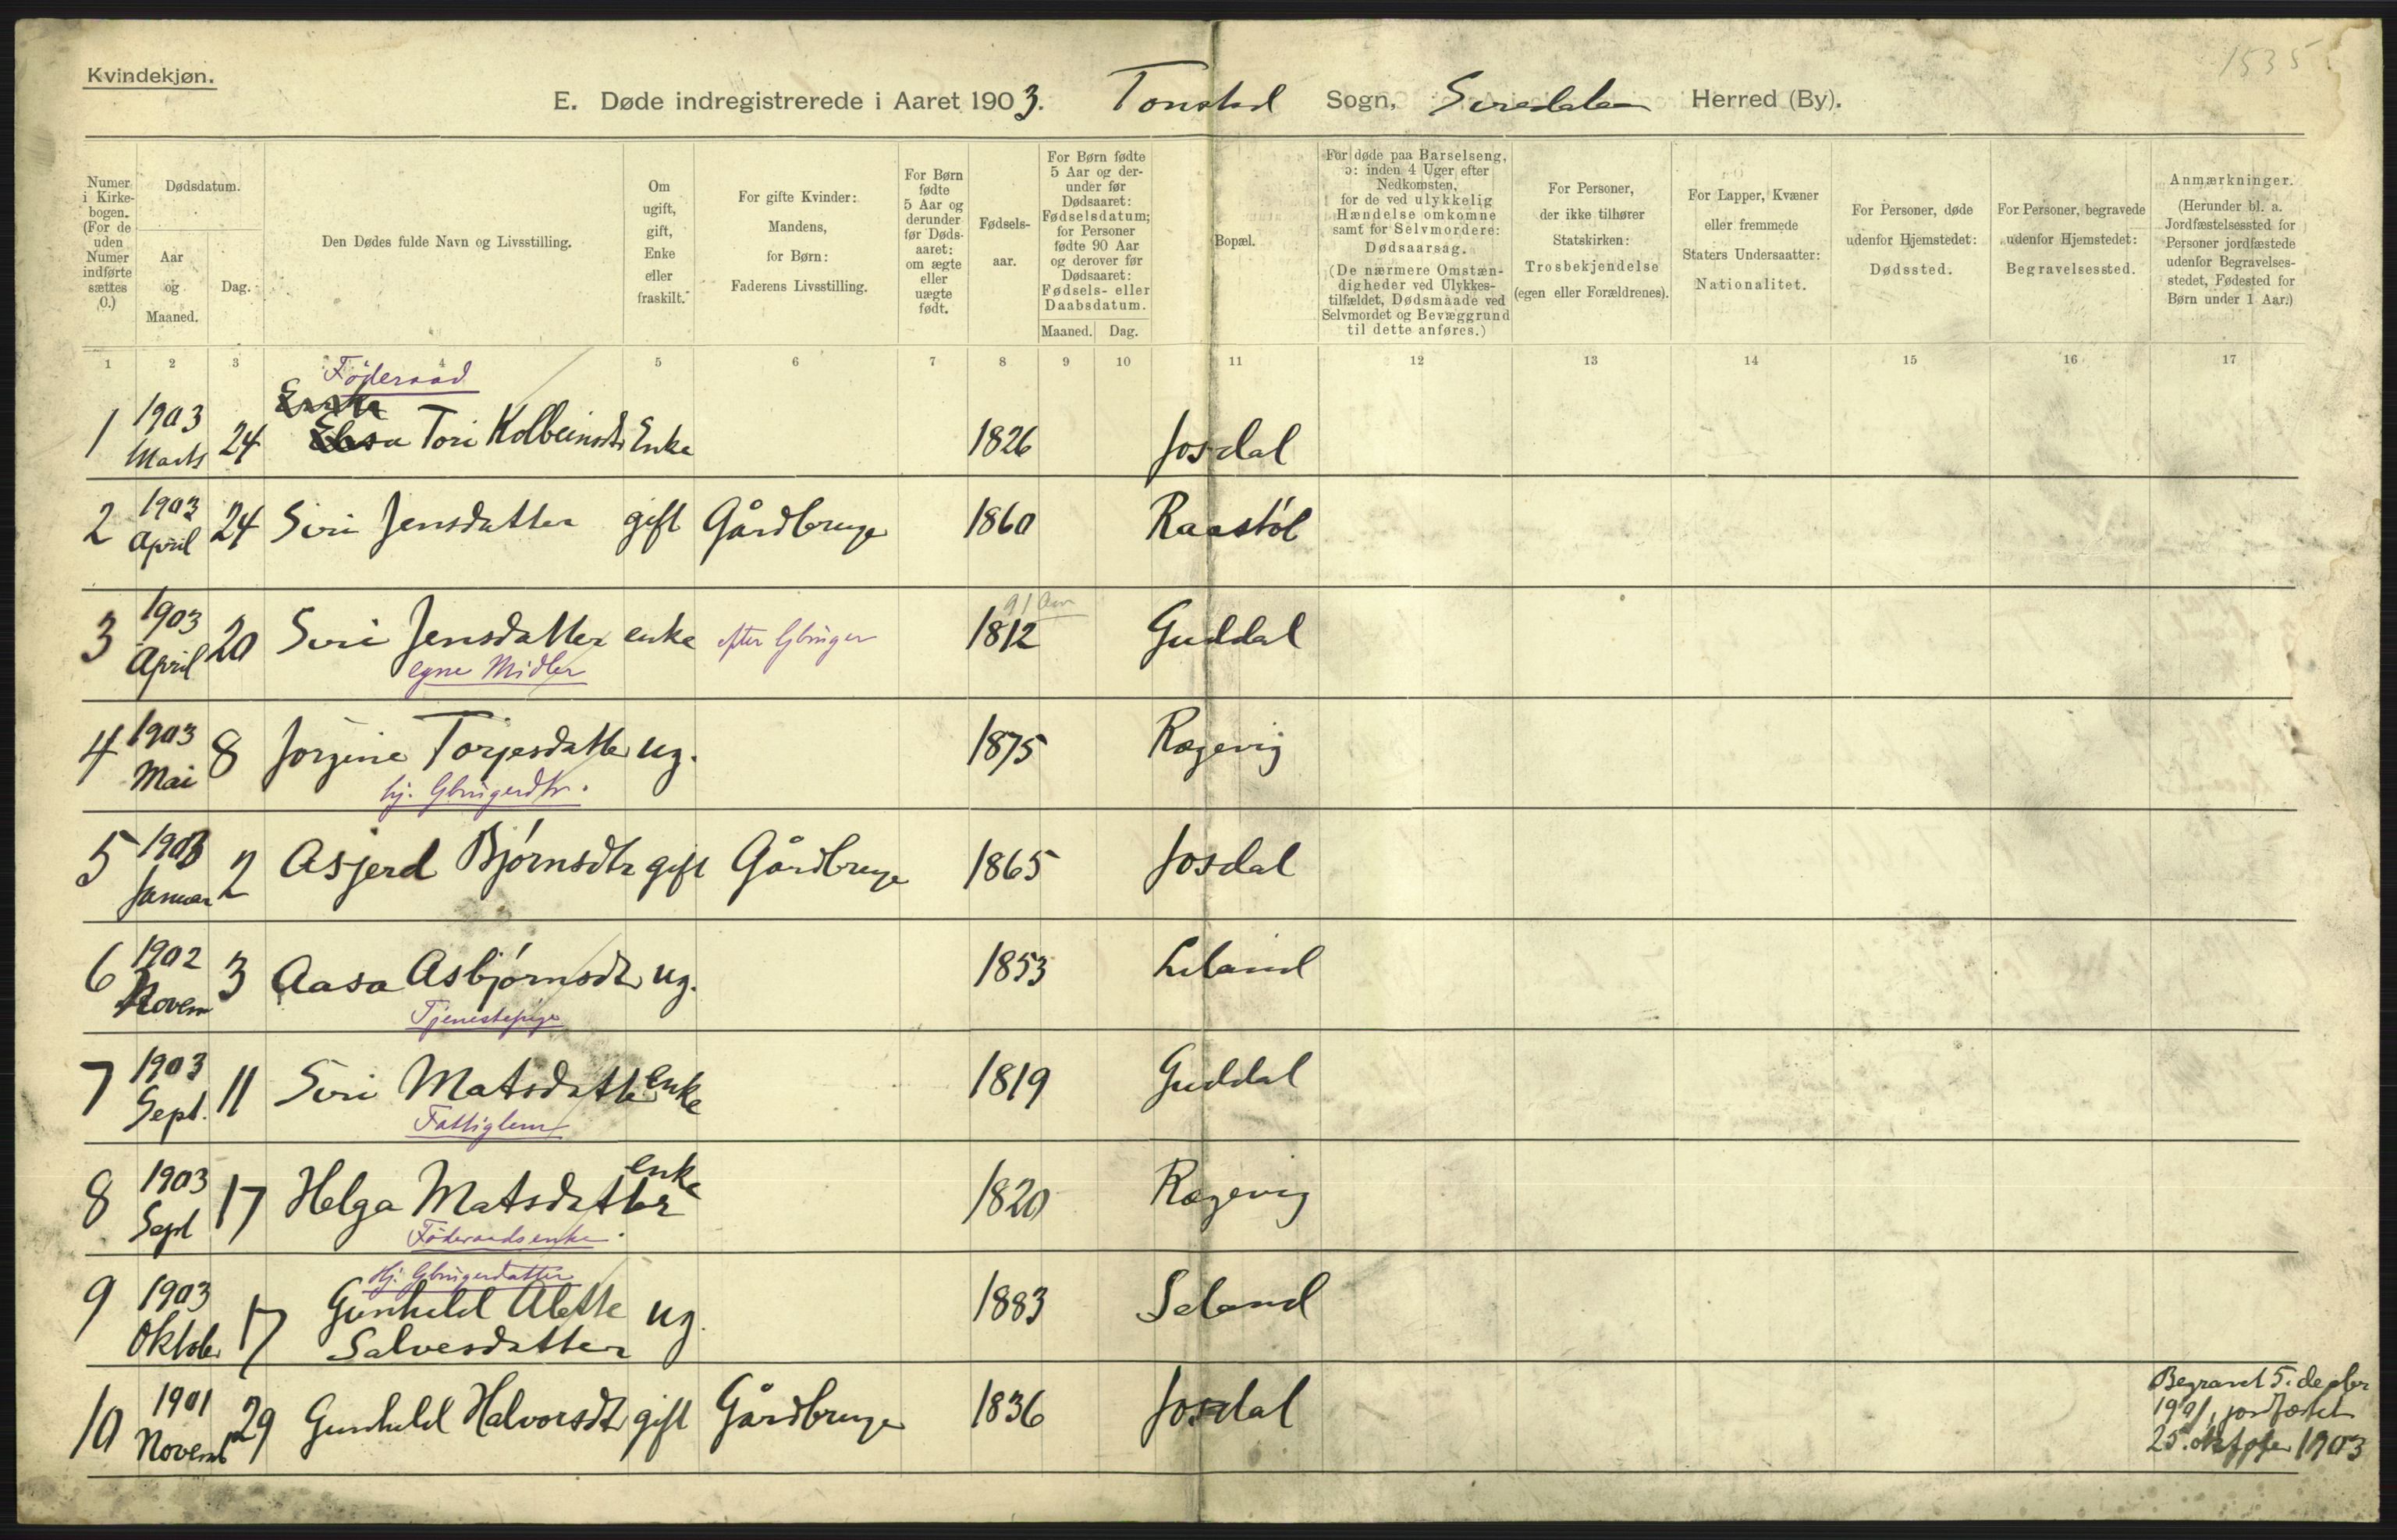 1535
Kvindekjøn.
E. Døde indregistrerede i Aaret 1903. Tonstad Sogn, Siredalen Herred (By).
Numer i Kirkebogen. (For de uden Numer indførte sættes 0.)
Dødsdatum.
Aar og Maaned.
Dag.
Den Dødes fulde Navn og Livsstilling.
Om ugift, gift, Enke eller fraskilt.
For gifte Kvinder: Mandens, for Børn: Faderens Livsstilling.
For Børn fødte 5 Aar og derunder før Dødsaaret: om ægte eller uægte født.
Fødselsaar.
For Børn fødte 5 Aar og derunder før Dødsaaret: Fødselsdatum; for Personer fødte 90 Aar og derover før Dødsaaret: Fødsels- eller Daabsdatum.
Maaned. Dag.
Bopæl.
For døde paa Barselseng, ɔ: inden 4 Uger efter Nedkomsten, for de ved ulykkelig Hændelse omkomne samt for Selvmordere: Dødsaarsag. (De nærmere Omstændigheder ved Ulykkestilfældet, Dødsmaade ved Selvmordet og Bevæggrund til dette anføres.)
For Personer, der ikke tilhører Statskirken: Trosbekjendelse (egen eller Forældrenes).
For Lapper, Kvæner eller fremmede Staters Undersaatter: Nationalitet.
For Personer, døde udenfor Hjemstedet: Dødssted.
For Personer, begravede udenfor Hjemstedet: Begravelsessted.
Anmærkninger. (Herunder bl. a. Jordfæstelsessted for Personer jordfæstede udenfor Begravelsesstedet, Fødested for Børn under 1 Aar.)
1 2 3 4 5 6 7 8 9 10 11 12 13 14 15 16 17
Føderaad
1 1903 Marts 24 Tori Kolbeinsdtr Enke 1826 Josdal
2 1903 April 24 Siri Jensdatter gift Gårdbruger 1860 Raastøl
91 Aar
3 1903 April 20 Siri Jensdatter enke efter Gbruger 1812 Guddal
egne Midler
4 1903 Mai 8 Jorgine Torjesdatter ug. 1875 Rægevig
hj. Gbrugerdtr.
5 1903 Januar 2 Asjerd Bjørnsdtr gift Gårdbruger 1865 Josdal
6 1902 Novem 3 Aasa Asbjørnsdtr ug. 1853 Liland
Tjenestepige
7 1903 Sept. 11 Siri Matsdatter enke 1819 Guddal
Fattiglem
8 1903 Sept 17 Helga Matsdatter enke 1820 Rægevig
Føderaadsenke.
Hj. Gbrugerdatter
9 1903 Oktober 17 Gunhild Alette ug. 1883 Seland
Salvesdatter
10 1901 Novemb 29 Gunhild Halvorsdtr gift Gårdbruger 1836 Josdal
Begravet 5. decbr
1901, jordfæstet
25. oktober 1903